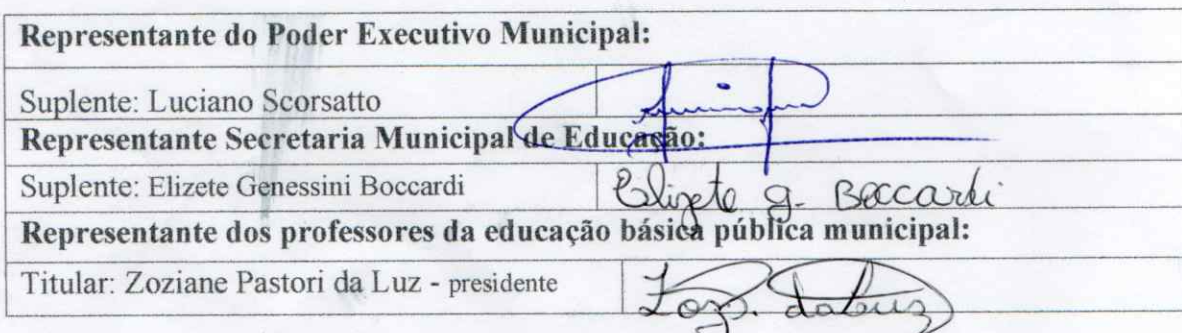 Representante do Poder Executivo Municipal:
Suplente: Luciano Scorsatto
Representante Secretaria Municipal de Educação:
Suplente: Elizete Genessini Boccardi Elizete G. Boccardi
Representante dos professores da educação básica pública municipal:
Titular: Zoziane Pastori da Luz - presidente Zoz. da Luz